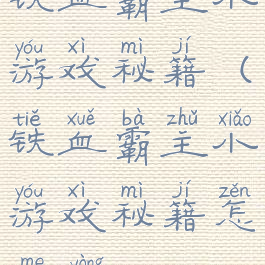 铁血霸主小
yóu xì mì jí
游戏秘籍（
tiě xuě bà zhǔ xiǎo
铁血霸主小
yóu xì mì jí zěn
游戏秘籍怎
me yòng